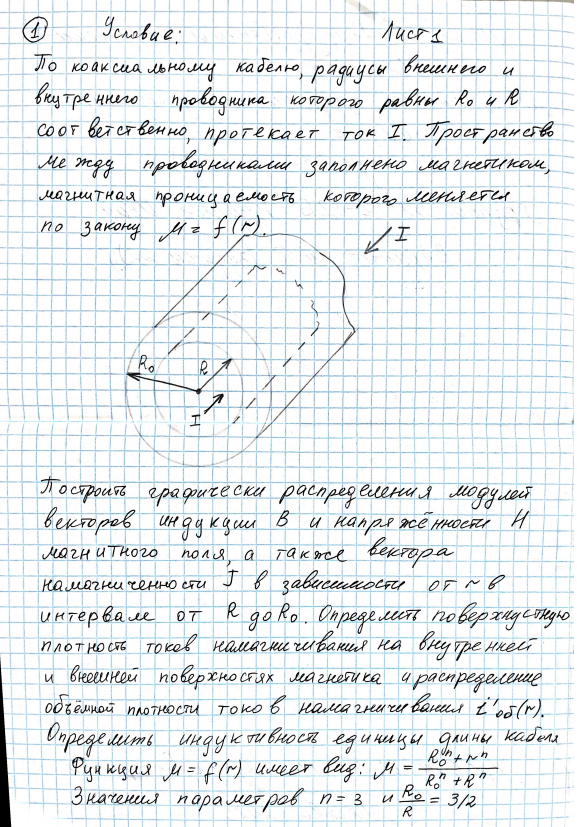 ① Условие: Лист 1
По коаксиальному кабелю, радиусы внешнего и
внутреннего проводника которого равны R₀ и R
соответственно, протекает ток I. Пространство
между проводниками заполнено магнетиком,
магнитная проницаемость которого меняется
по закону μ = f(r).
I
R₀
R
I
Построить графически распределения модулей
векторов индукции B и напряжённости H
магнитного поля, а также вектора
намагниченности J в зависимости от r в
интервале от R до R₀. Определить поверхнустную
плотность токов намагничивания на внутренней
и внешней поверхностях магнетика и распределение
объёмной плотности токов намагничивания i'об(r).
Определить индуктивность единицы длины кабеля
Функция μ = f(r) имеет вид: μ = (R₀ⁿ + rⁿ)/(R₀ⁿ + Rⁿ)
Значения параметров n = 3 и R₀/R = 3/2